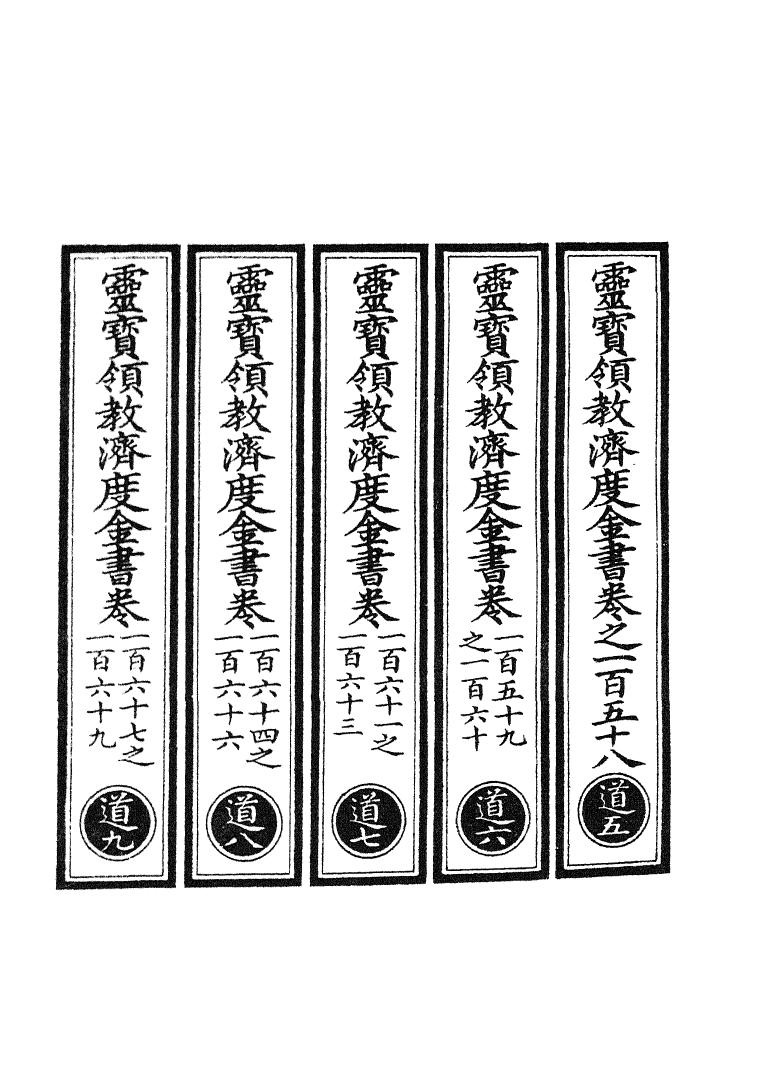 靈寶領教濟度金書卷之一百五十八
道五
靈寶領教濟度金書卷
一百五十九
之一百六十
道六
靈寶領教濟度金書卷
一百六十一之
一百六十三
道七
靈寶領教濟度金書卷
一百六十四之
一百六十六
道八
靈寶領教濟度金書卷
一百六十七之
一百六十九
道九